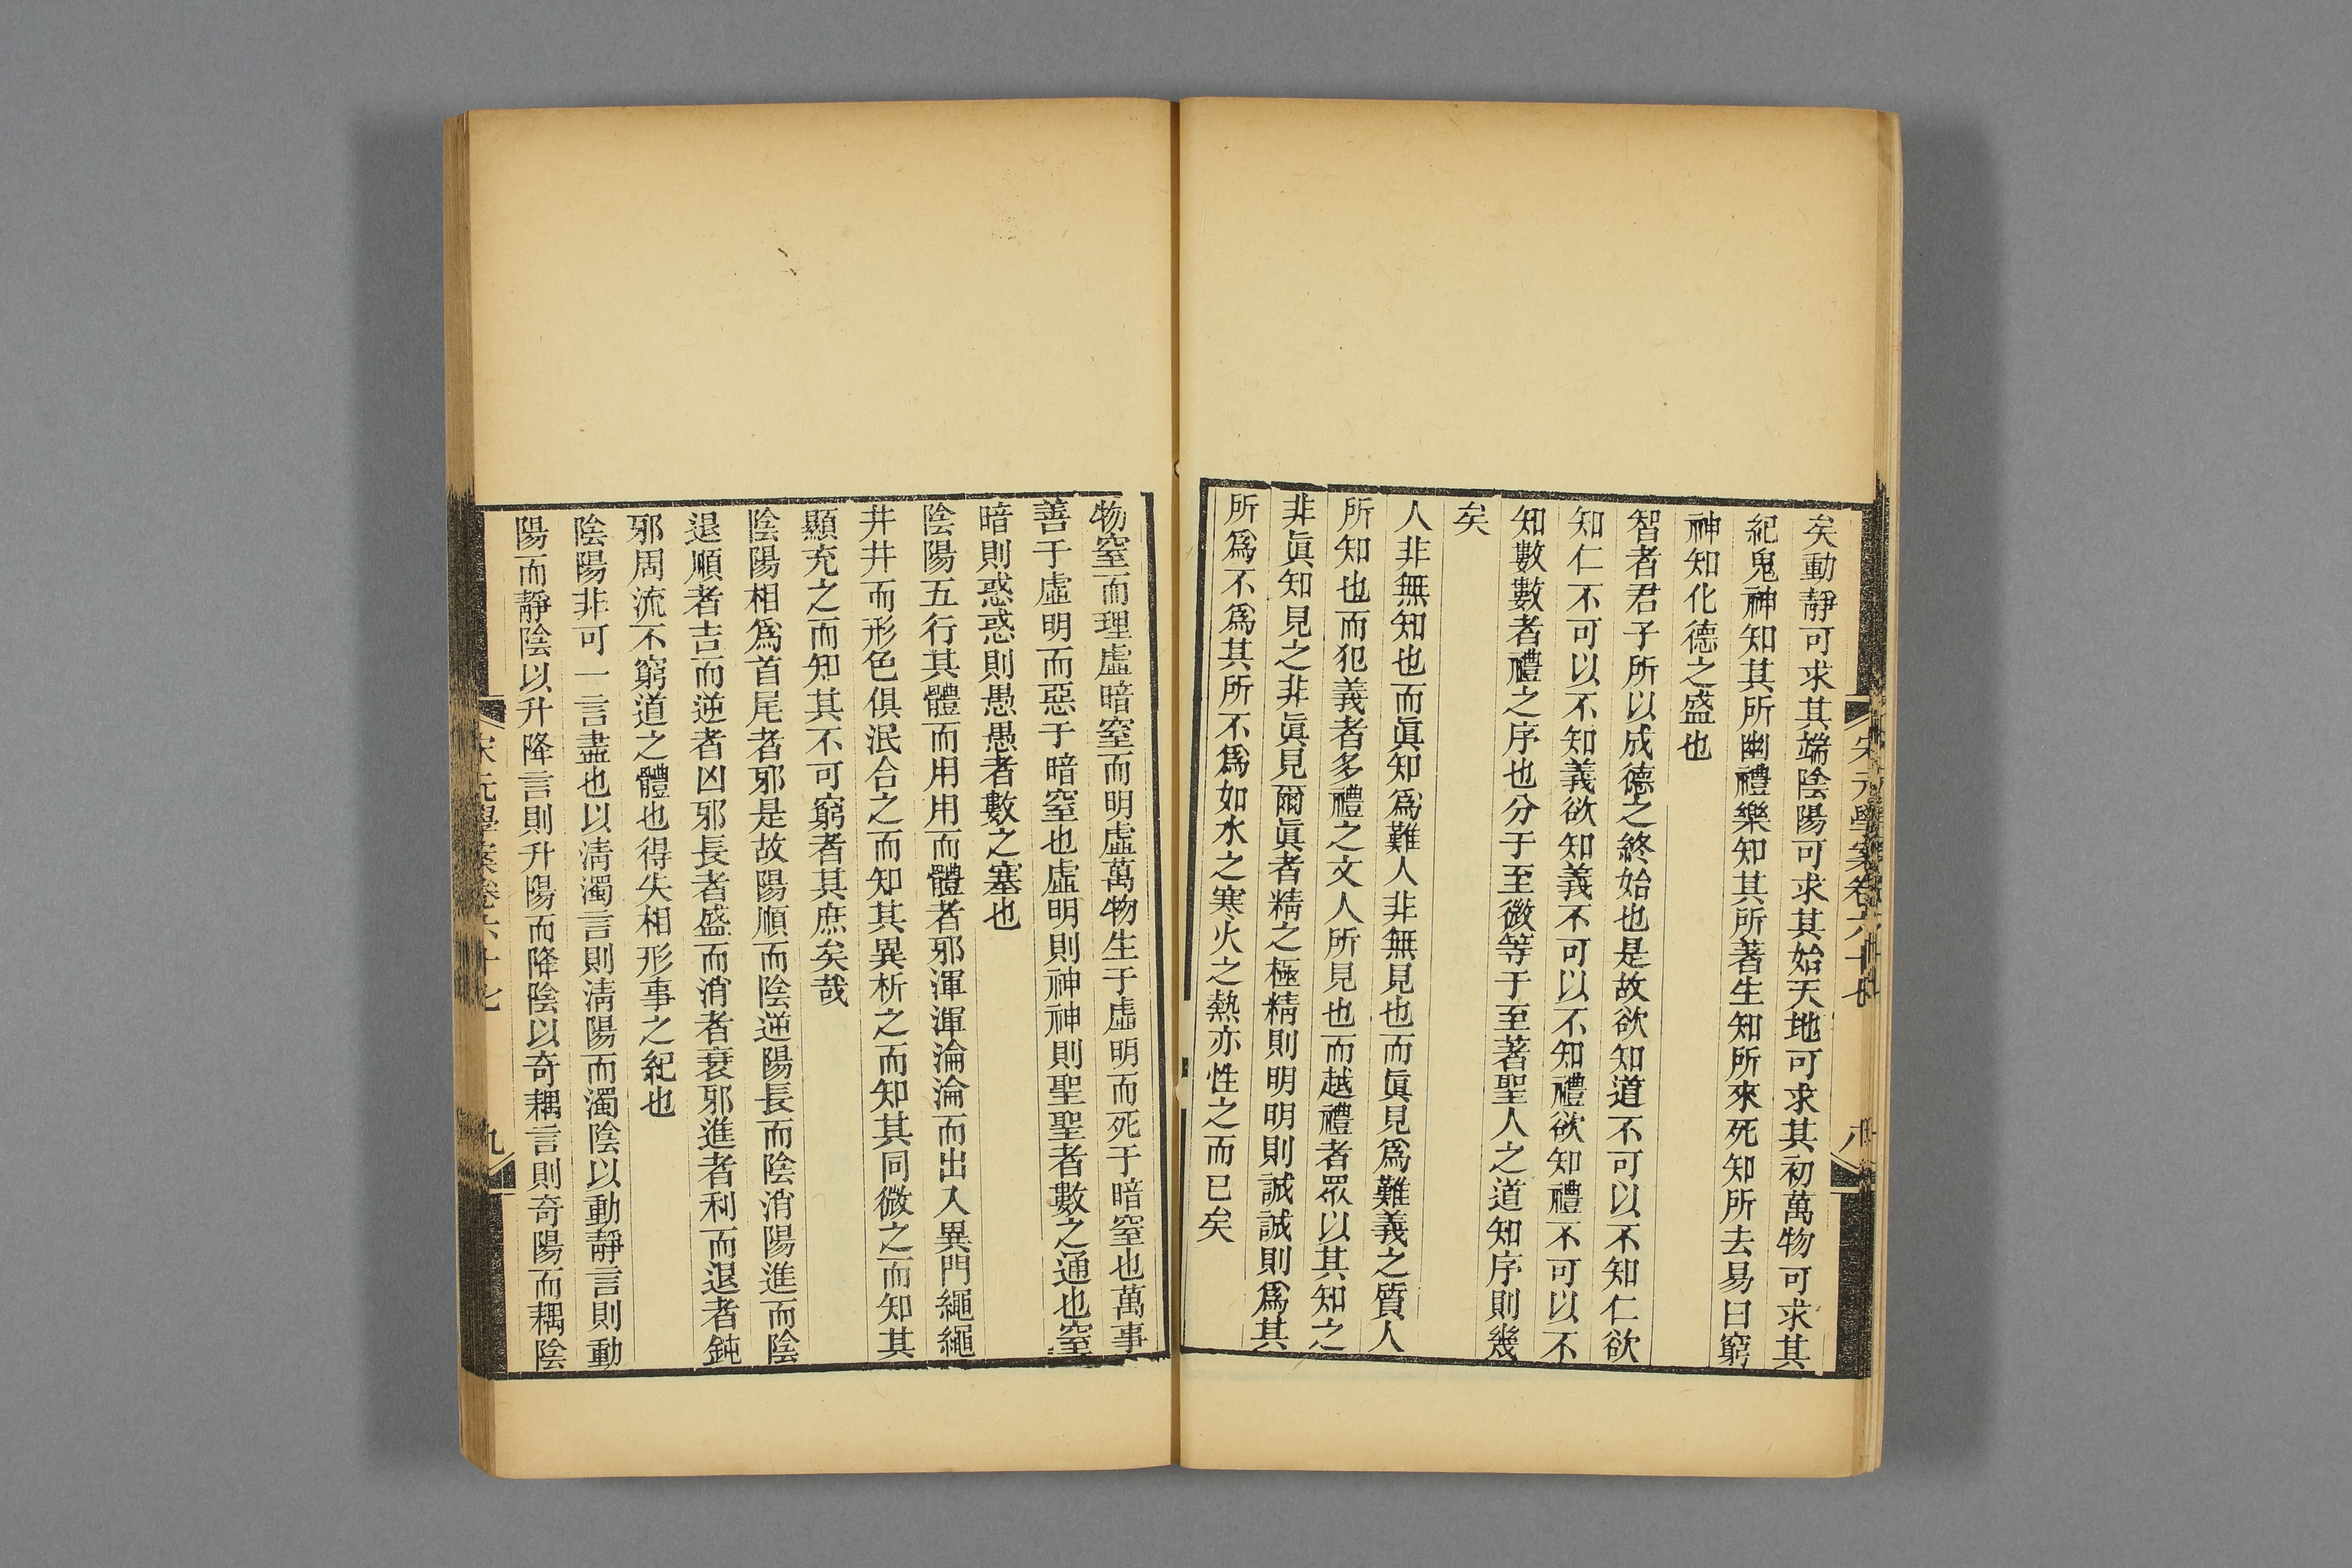 矣動靜可求其端陰陽可求其始天地可求其初萬物可求其
紀鬼神知其所幽禮樂知其所著生知所來死知所去易曰窮
神知化德之盛也
智者君子所以成德之終始也是故欲知道不可以不知仁欲
知仁不可以不知義欲知義不可以不知禮欲知禮不可以不
知數數者禮之序也分于至微等于至著聖人之道知序則幾
矣
人非無知也而眞知爲難人非無見也而眞見爲難義之質人
所知也而犯義者多禮之文人所見也而越禮者眾以其知之
非眞知見之非眞見爾眞者精之極精則明明則誠誠則爲其
所爲不爲其所不爲如水之寒火之熱亦性之而已矣
宋元學案卷六十七
八
物窒而理虛暗窒而明虛萬物生于虛明而死于暗窒也萬事
善于虛明而惡于暗窒也虛明則神神則聖聖者數之通也窒
暗則惑惑則愚愚者數之塞也
陰陽五行其體而用用而體者邪渾渾淪淪而出入異門繩繩
井井而形色俱泯合之而知其異析之而知其同微之而知其
顯充之而知其不可窮者其庶矣哉
陰陽相爲首尾者邪是故陽順而陰逆陽長而陰消陽進而陰
退順者吉而逆者凶邪長者盛而消者衰邪進者利而退者鈍
邪周流不窮道之體也得失相形事之紀也
陰陽非可一言盡也以淸濁言則淸陽而濁陰以動靜言則動
陽而靜陰以升降言則升陽而降陰以奇耦言則奇陽而耦陰
宋元學案卷六十七
九